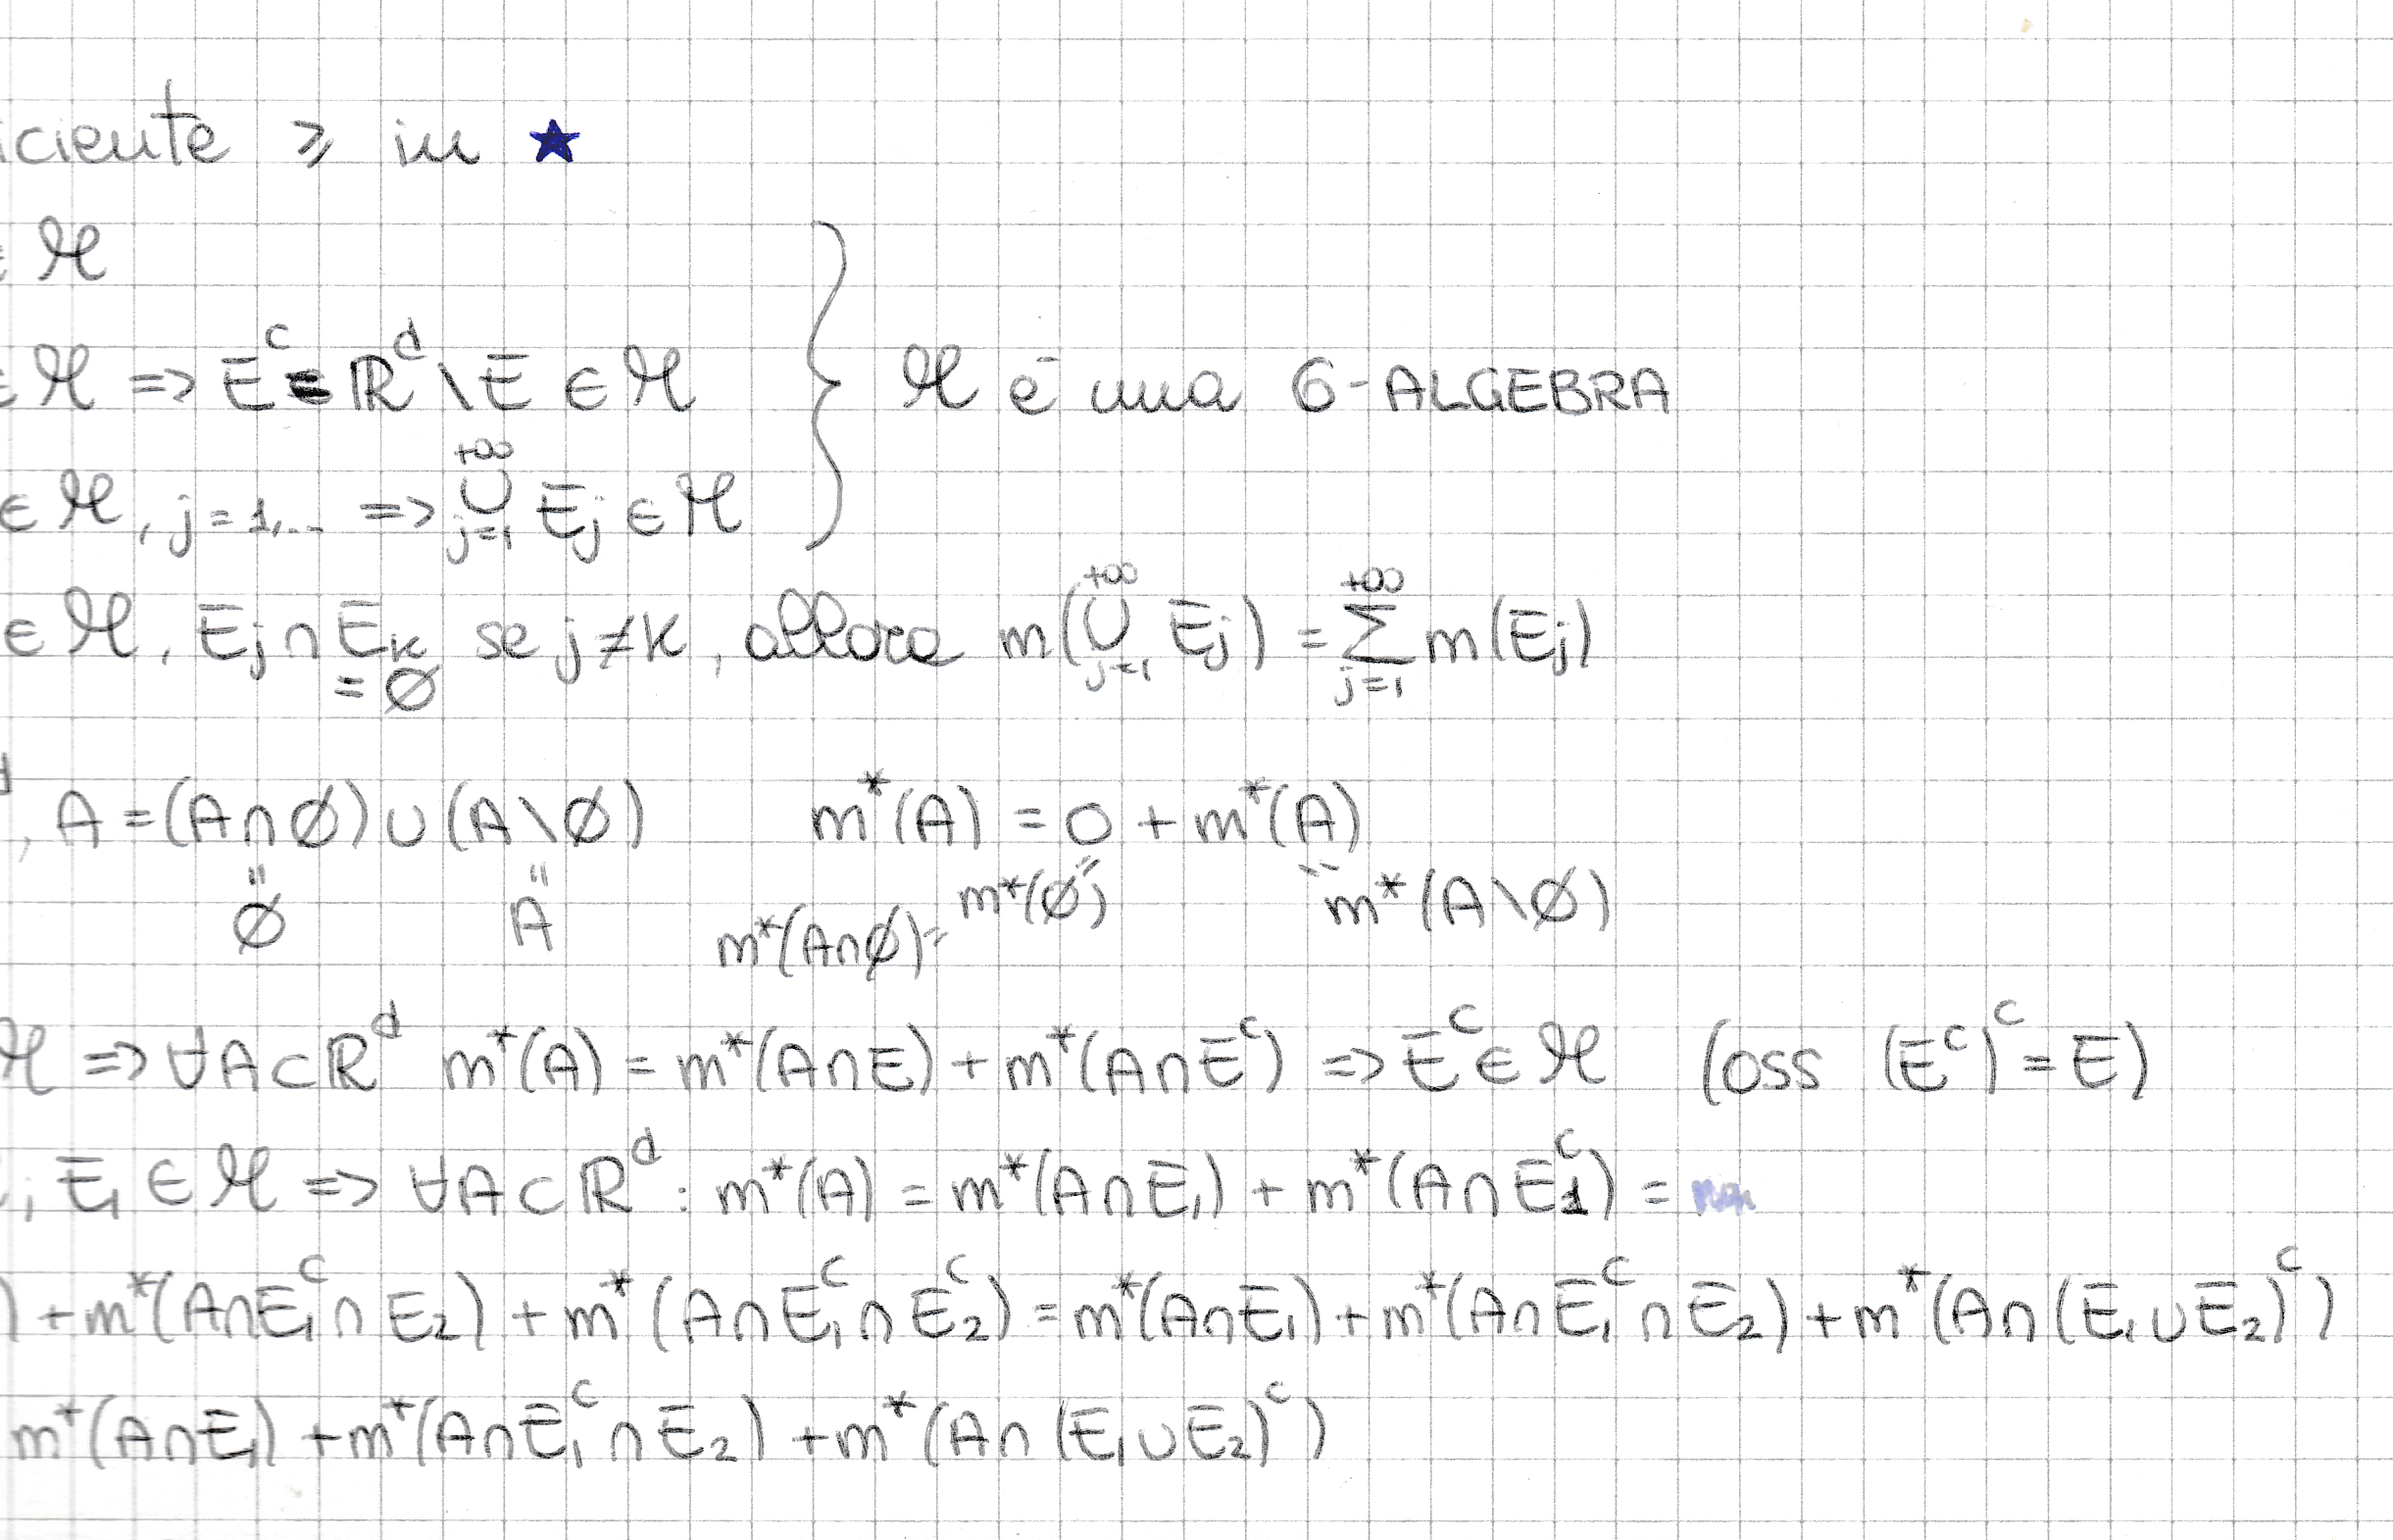 iciente ⩾ in ★
∈ ℳ
∈ ℳ => E^c = ℝ^d \ E ∈ ℳ } ℳ è una σ-ALGEBRA
∈ ℳ, j=1,... => ⋃_{j=1}^{+∞} E_j ∈ ℳ
∈ ℳ, E_j ∩ E_k = ∅ se j≠k, allora m(⋃_{j=1}^{+∞} E_j) = ∑_{j=1}^{+∞} m(E_j)
d, A = (A∩∅) ∪ (A\∅) m*(A) = 0 + m*(A)
" " " "
∅ A m*(A∩∅) = m*(∅) m*(A\∅)
ℳ => ∀A⊂ℝ^d m*(A) = m*(A∩E) + m*(A∩E^c) => E^c ∈ ℳ (OSS (E^c)^c = E)
, E_1 ∈ ℳ => ∀A⊂ℝ^d : m*(A) = m*(A∩E_1) + m*(A∩E_1^c) =
) + m*(A∩E_1^c∩E_2) + m*(A∩E_1^c∩E_2^c) = m*(A∩E_1) + m*(A∩E_1^c∩E_2) + m*(A∩(E_1∪E_2)^c)
m*(A∩E_1) + m*(A∩E_1^c∩E_2) + m*(A∩(E_1∪E_2)^c)